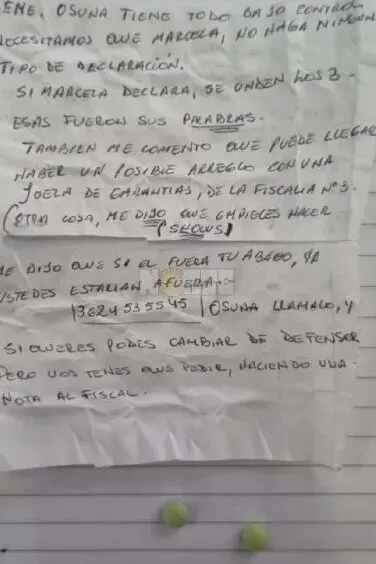 EME. OSUNA TIENE TODO BAJO CONTROL
NECESITAMOS QUE MARCELA, NO HAGA NINGUN
TIPO DE DECLARACIÓN.
SI MARCELA DECLARA, SE UNDEN LOS 3.
ESAS FUERON SUS PALABRAS.
TAMBIEN ME COMENTO QUE PUEDE LLEGAR
HABER UN POSIBLE ARREGLO CON UNA
JUEZA DE GARANTIAS, DE LA FISCALIA Nº3.
(OTRA COSA, ME DIJO QUE EMPIECES HACER
(SHOWS)
ME DIJO QUE SI EL FUERA TU ABAGO, YA
USTEDES ESTARIAN AFUERA.
3624535545 OSUNA LLAMALO, Y
SI QUERES PODES CAMBIAR DE DEFENSOR
PERO VOS TENES QUE PEDIR, HACIENDO UNA
NOTA AL FISCAL.